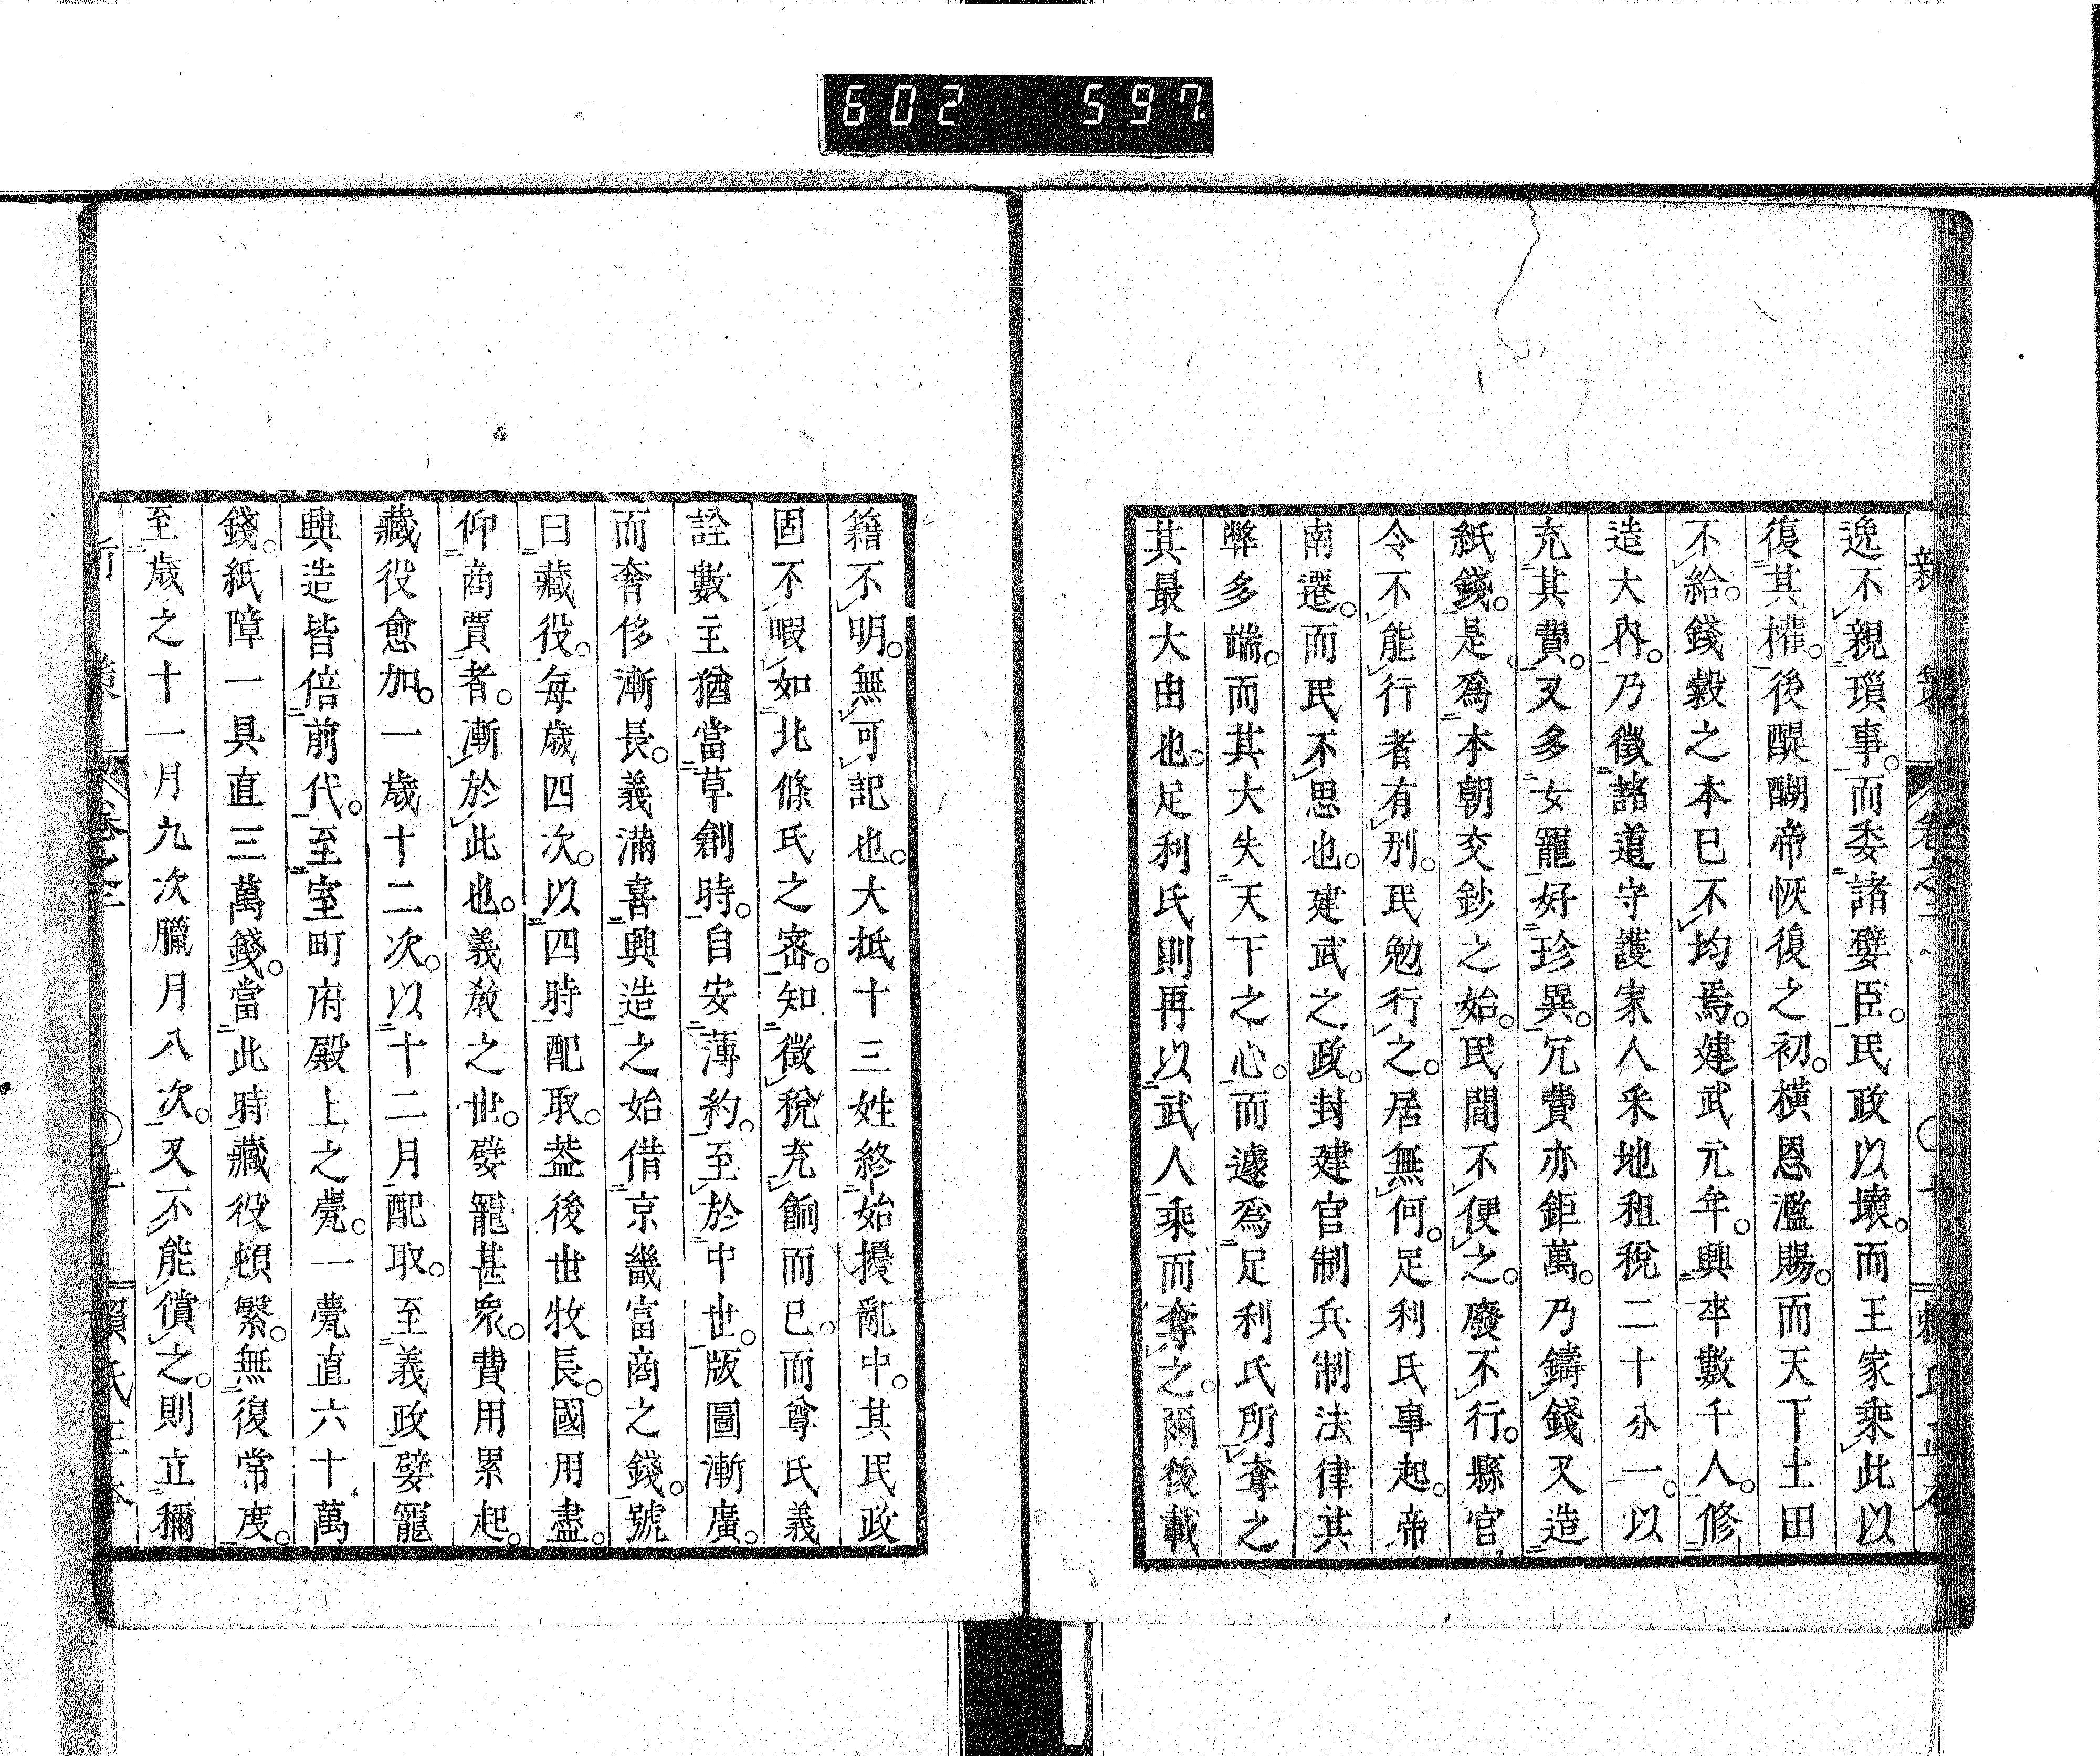 602 597
逸不親瑣事。而委諸嬖臣。民政以壞。而王家乘此以
復其權。後醍醐帝恢復之初。橫恩濫賜。而天下土田
不給。錢穀之本已不均焉。建武元年。興卒數千人。修
造大內。乃徵諸道守護家人釆地租稅二十分一。以
充其費。又多女寵好珍異。冗費亦鉅萬。乃鑄錢又造
紙錢。是爲本朝交鈔之始。民間不便之。廢不行。縣官
令不能行者有刑。民勉行之。居無何。足利氏事起。帝
南遷。而民不思也。建武之政。封建官制兵制法律其
弊多端。而其大失天下之心。而遽爲足利氏所奪之
其最大由也。足利氏則再以武人乘而奪之。爾後載
籍不明。無可記也。大抵十三姓終始擾亂中。其民政
固不暇如北條氏之密。知徵稅充餉而已。而尊氏義
詮數主猶當草創時。自安薄約。至於中世。版圖漸廣。
而奢侈漸長。義滿喜興造之始借京畿富商之錢。號
曰藏役。每歲四次。以四時配取。蓋後世牧長。國用盡。
仰商賈者。漸於此也。義敎之世。嬖寵甚衆。費用累起。
藏役愈加。一歲十二次。以十二月配取。至義政嬖寵
興造皆倍前代。至室町府殿上之甍。一甍直六十萬
錢。紙障一具直三萬錢。當此時藏役頓繁。無復常度。
至歲之十一月九次臘月八次。又不能償之。則立稱